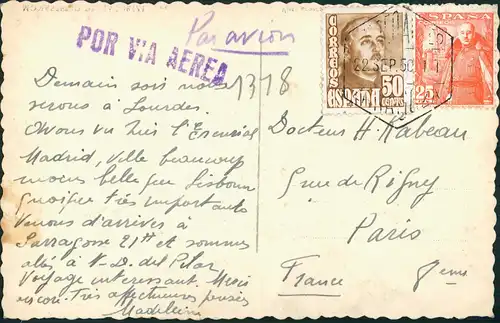 POR VIA AEREA
Par avion
1318
CORREOS
50 CENTS
ESPAÑA
ESPAÑA
25
22 SEP 50
Demain soir nous
serons à Lourdes.
Avons vu hier l'Escurial
Madrid, Ville beaucoup
moins belle que Lisbonne
quoique très importante
Venons d'arriver à
Sarragosse 21H et sommes
allés à N-D. del Pilar
Voyage interessant. Merci
encore. Très affectueuses pensées
Madeleine
Docteur H. Rabeau
5 rue de Rigny
Paris
France 8ème